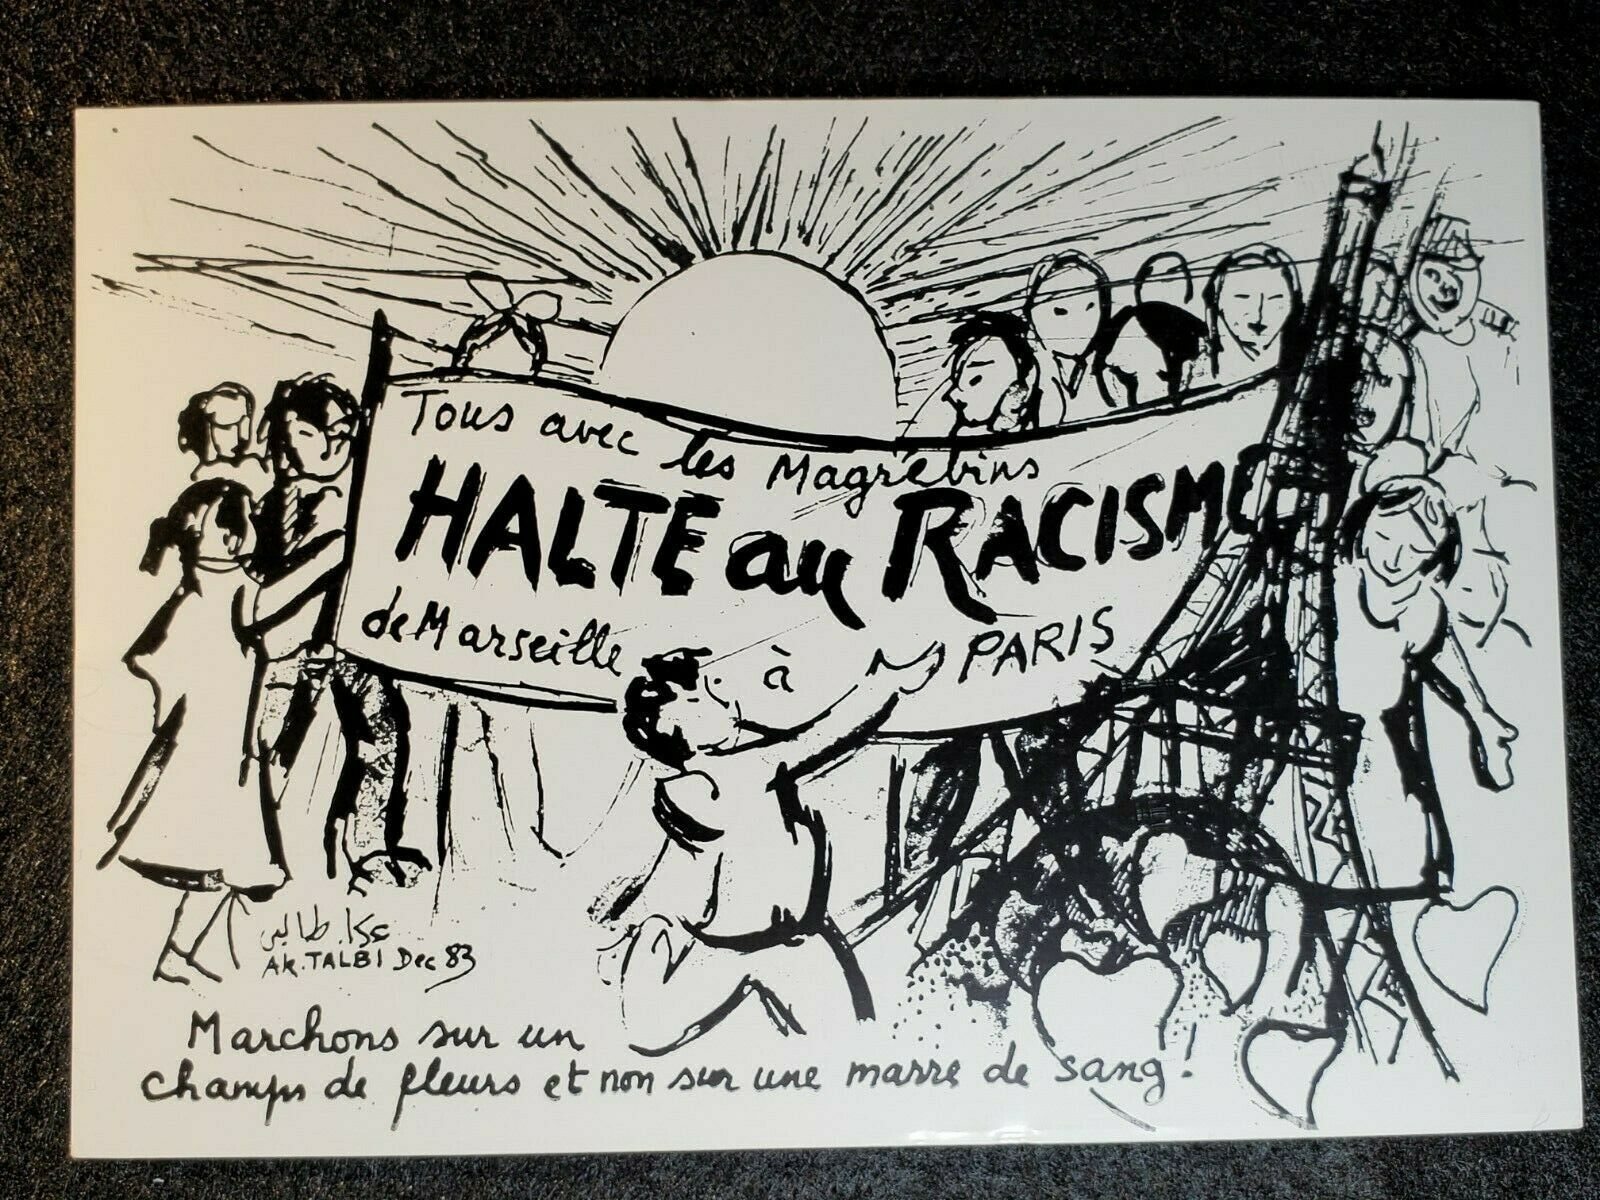 Tous avec les Magrébins
HALTE au RACISME
de Marseille à PARIS
عكا. طالبي
AK. TALBI Dec 83
Marchons sur un
champs de fleurs et non sur une marre de sang.